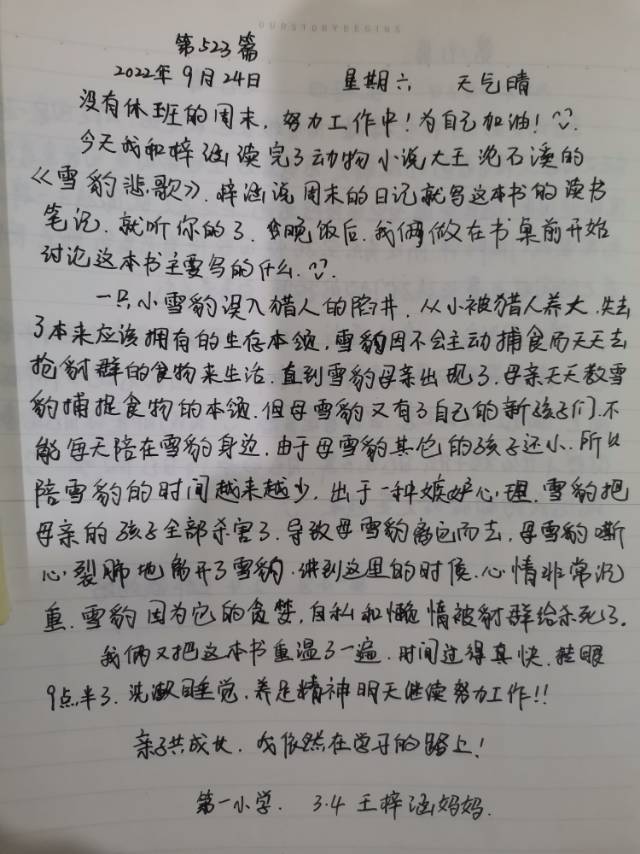 OURSTORYBEGINS
第523篇
2022年9月24日 星期六 天气晴
没有休班的周末，努力工作中！为自己加油！
今天我和梓涵读完了动物小说大王沈石溪的
《雪豹悲歌》．梓涵说周末的日记就写这本书的读书
笔记．就听你的了．食晚饭后．我俩做在书桌前开始
讨论这本书主要写的什么．
一只小雪豹误入猎人的陷井．从小被猎人养大．失去
了本来应该拥有的生存本领．雪豹因不会主动捕食而天天去
抢豺群的食物来生活．直到雪豹母亲出现了．母亲天天教雪
豹捕捉食物的本领．但母雪豹又有了自己的新孩子们．不
能每天陪在雪豹身边．由于母雪豹其它的孩子还小．所以
陪雪豹的时间越来越少．出于一种嫉妒心理．雪豹把
母亲的孩子全部杀害了．导致母雪豹离它而去．母雪豹嘶
心裂肺地离开了雪豹．讲到这里的时候．心情非常沉
重．雪豹因为它的贪婪．自私和懒惰被豺群给杀死了．
我俩又把这本书重温了一遍．时间过得真快．眨眼
9点半了．洗漱睡觉．养足精神明天继续努力工作！！
亲子共成长．我依然在学习的路上！
第一小学． 3.4 王梓涵妈妈．